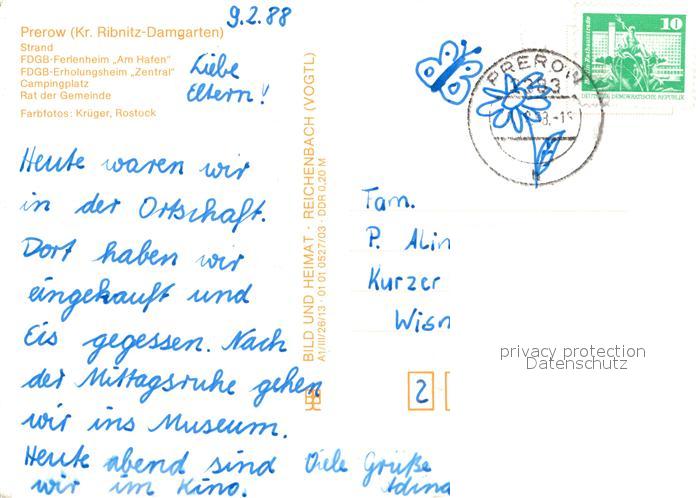 9.2.88
Prerow (Kr. Ribnitz-Damgarten)
Strand
FDGB-Ferienheim „Am Hafen"
FDGB-Erholungsheim „Zentral"
Campingplatz
Rat der Gemeinde
Farbfotos: Krüger, Rostock
Liebe
Eltern!
Heute waren wir
in der Ortschaft.
Dort haben wir
eingekauft und
Eis gegessen. Nach
der Mittagsruhe gehen
wir ins Museum.
Heute abend sind
wir im Kino.
Viele Grüße
BILD UND HEIMAT · REICHENBACH (VOGTL)
A1/III/26/13 · 01 01 0527/03 · DDR 0,20 M
PREROW
10
DEUTSCHE DEMOKRATISCHE REPUBLIK
Fam.
P. Alin
Kurzer
Wism
2
privacy protection
Datenschutz